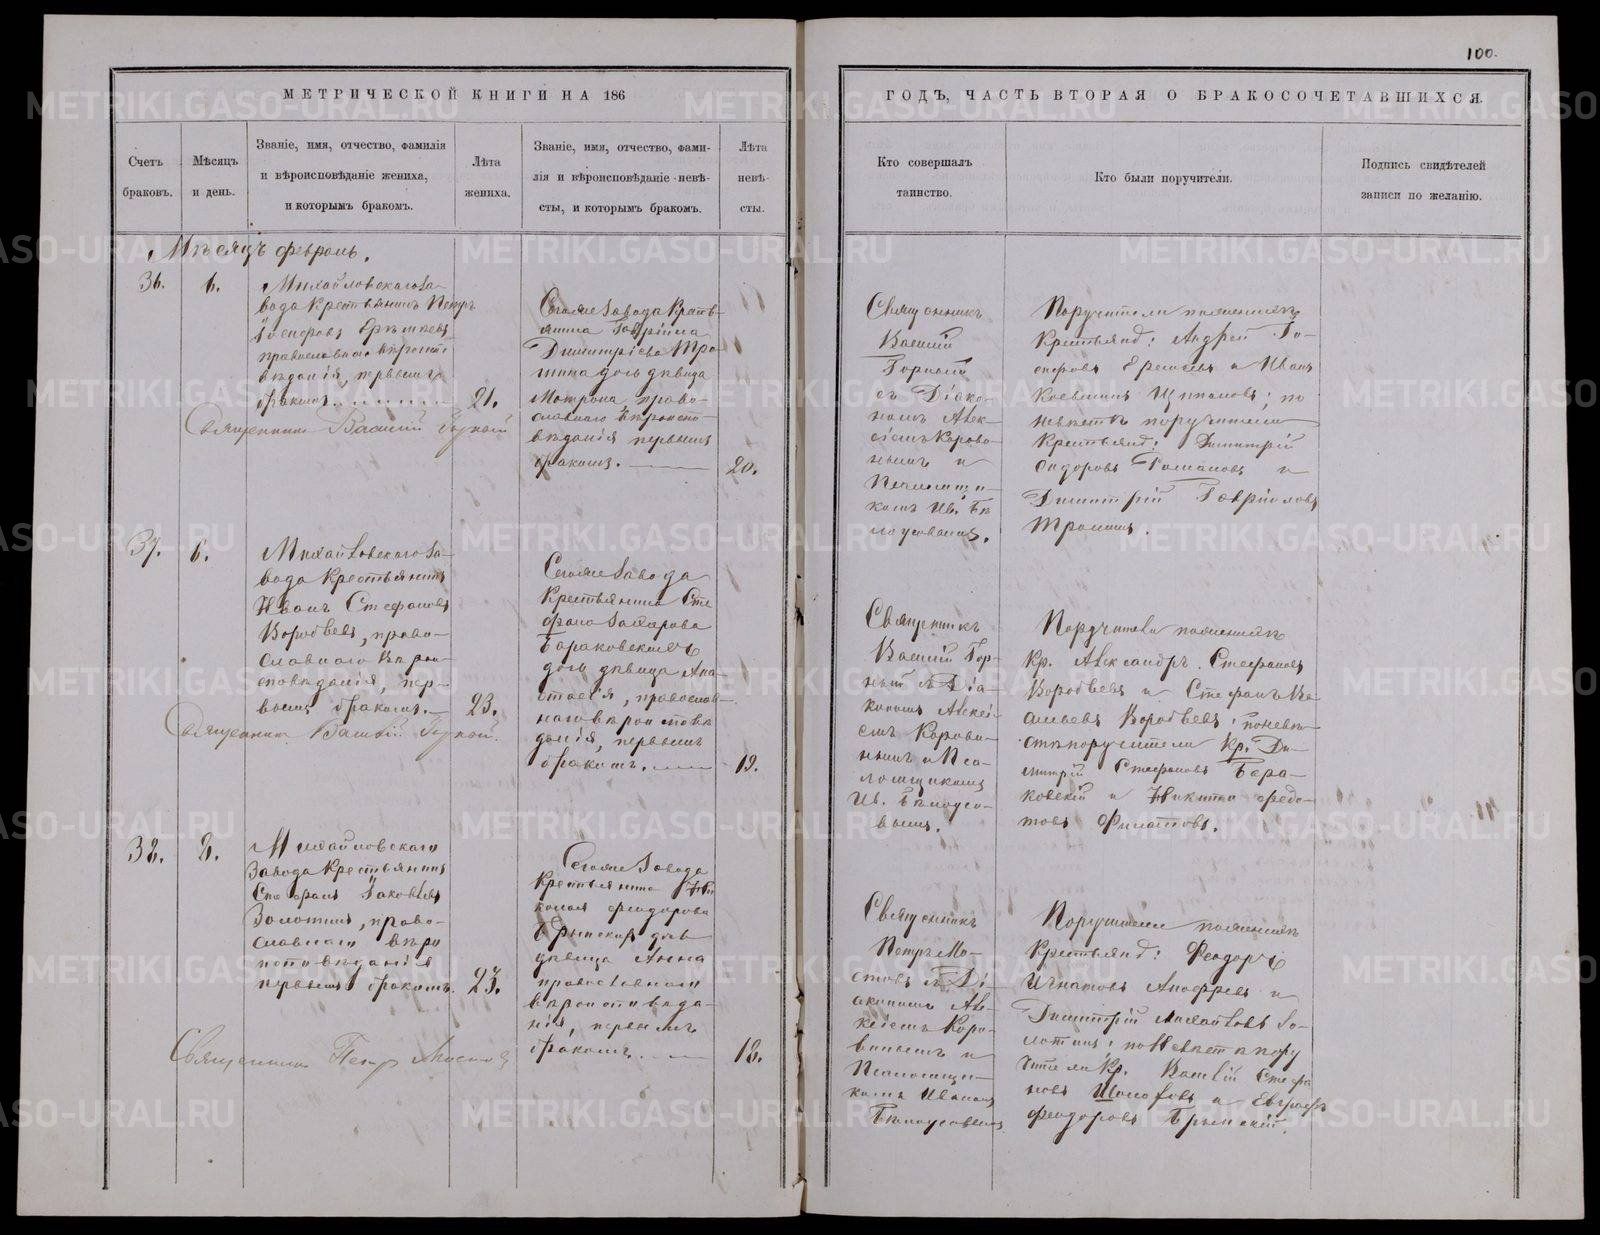 100.
МЕТРИЧЕСКОЙ КНИГИ НА 186
ГОДЪ, ЧАСТЬ ВТОРАЯ О БРАКОСОЧЕТАВШИХСЯ.
Счетъ браковъ.
Мѣсяцъ и день.
Званіе, имя, отчество, фамилія
и вѣроисповѣданіе жениха,
и которымъ бракомъ.
Лѣта
жениха.
Званіе, имя, отчество, фами-
лія и вѣроисповѣданіе невѣ-
сты, и которымъ бракомъ.
Лѣта
невѣ-
сты.
Кто совершалъ
таинство.
Кто были поручители.
Подпись свидѣтелей
записи по желанію.
Мѣсяцъ февраль.
36.
6.
Михайловскаго за-
вода крестьянинъ Петръ
православнаго вѣроиспо-
вѣданія, первымъ
бракомъ
21.
Священникъ Василий
Тогоже завода Кресть-
янина Гавріила
Димитріева Тро-
шина дочь дѣвица
Матрона, право-
славнаго вѣроиспо-
вѣданія первымъ
бракомъ.
20.
Священникъ
Василій
Горный
съ Діако-
номъ Алек-
сіемъ Корово-
нымъ и
Псаломщи-
комъ Ив. Бѣ-
лоусовымъ.
Поручители по женихѣ
Крестьяне: Андрей
и Иванъ
по
невѣстѣ поручители
Крестьяне: Димитрій
Сидоровъ Романовъ и
Димитрій Гавриловъ
Трошинъ.
37.
6.
Михайловскаго за-
вода Крестьянинъ
Иванъ Стефановъ
Воробьевъ, право-
славнаго вѣрои-
сповѣданія, пер-
вымъ бракомъ.
23.
Священникъ Василій
Тогоже завода
Крестьянина Сте-
фана Захарова
Бараковскаго
дочь дѣвица Ана-
стасія, православ-
наго вѣроисповѣ-
данія, первымъ
бракомъ.
19.
Священникъ
Василій Гор-
ный съ Діа-
кономъ Алексі-
емъ Корово-
нымъ и Пса-
ломщикомъ
Ив. Бѣлоусо-
вымъ.
Поручители по женихѣ
Кр. Александръ Стефановъ
Воробьевъ и Стефанъ Ва-
сильевъ Воробьевъ; по невѣ-
стѣ поручители Кр. Ди-
митрій Стефановъ Бара-
ковскій и Никита Федо-
товъ Филатовъ.
38.
8.
Михайловскаго
Завода Крестьянинъ
Стефанъ Яковлевъ
Золотинъ, право-
славнаго вѣро-
исповѣданія
первымъ бракомъ.
23.
Священникъ Петр Мостов
Тогоже Завода
Крестьянина Ни-
колая Феодорова
Брынскаго дочь
дѣвица Анна
православнаго
вѣроисповѣда-
нія, первымъ
бракомъ.
18.
Священникъ
Петръ Мо-
стовъ съ Ді-
акономъ Але-
ксіемъ Коро-
винымъ и
Псаломщи-
комъ Иваномъ
Бѣлоусовымъ.
Поручители по женихѣ
Крестьяне: Феодоръ
Игнатовъ и
Димитрій Михайловъ Зо-
лотинъ; по невѣстѣ пору-
чители Кр. Василій Стефа-
новъ и Евграфъ
Феодоровъ Брынскій.
METRIKI.GASO-URAL.RU